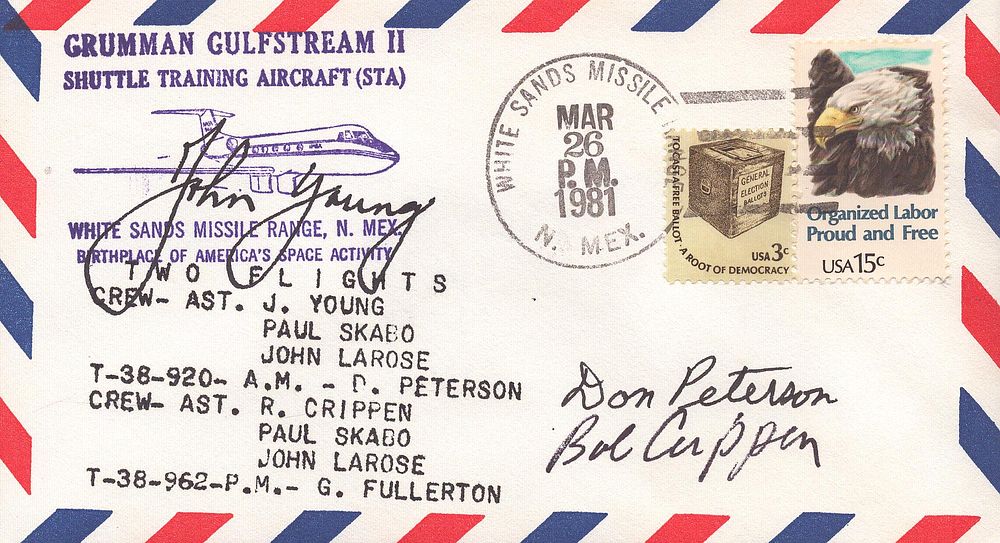 GRUMMAN GULFSTREAM II
SHUTTLE TRAINING AIRCRAFT (STA)
John Young
WHITE SANDS MISSILE RANGE, N. MEX.
BIRTHPLACE OF AMERICA'S SPACE ACTIVITY
TWO FLIGHTS
CREW- AST. J. YOUNG
PAUL SKABO
JOHN LAROSE
T-38-920- A.M. - D. PETERSON
CREW- AST. R. CRIPPEN
PAUL SKABO
JOHN LAROSE
T-38-962-P.M.- G. FULLERTON
WHITE SANDS MISSILE
MAR
26
P.M.
1981
N. MEX.
TO CAST A FREE BALLOT · A ROOT OF DEMOCRACY
GENERAL
ELECTION
BALLOTS
USA 3c
Organized Labor
Proud and Free
USA 15c
Don Peterson
Bob Crippen